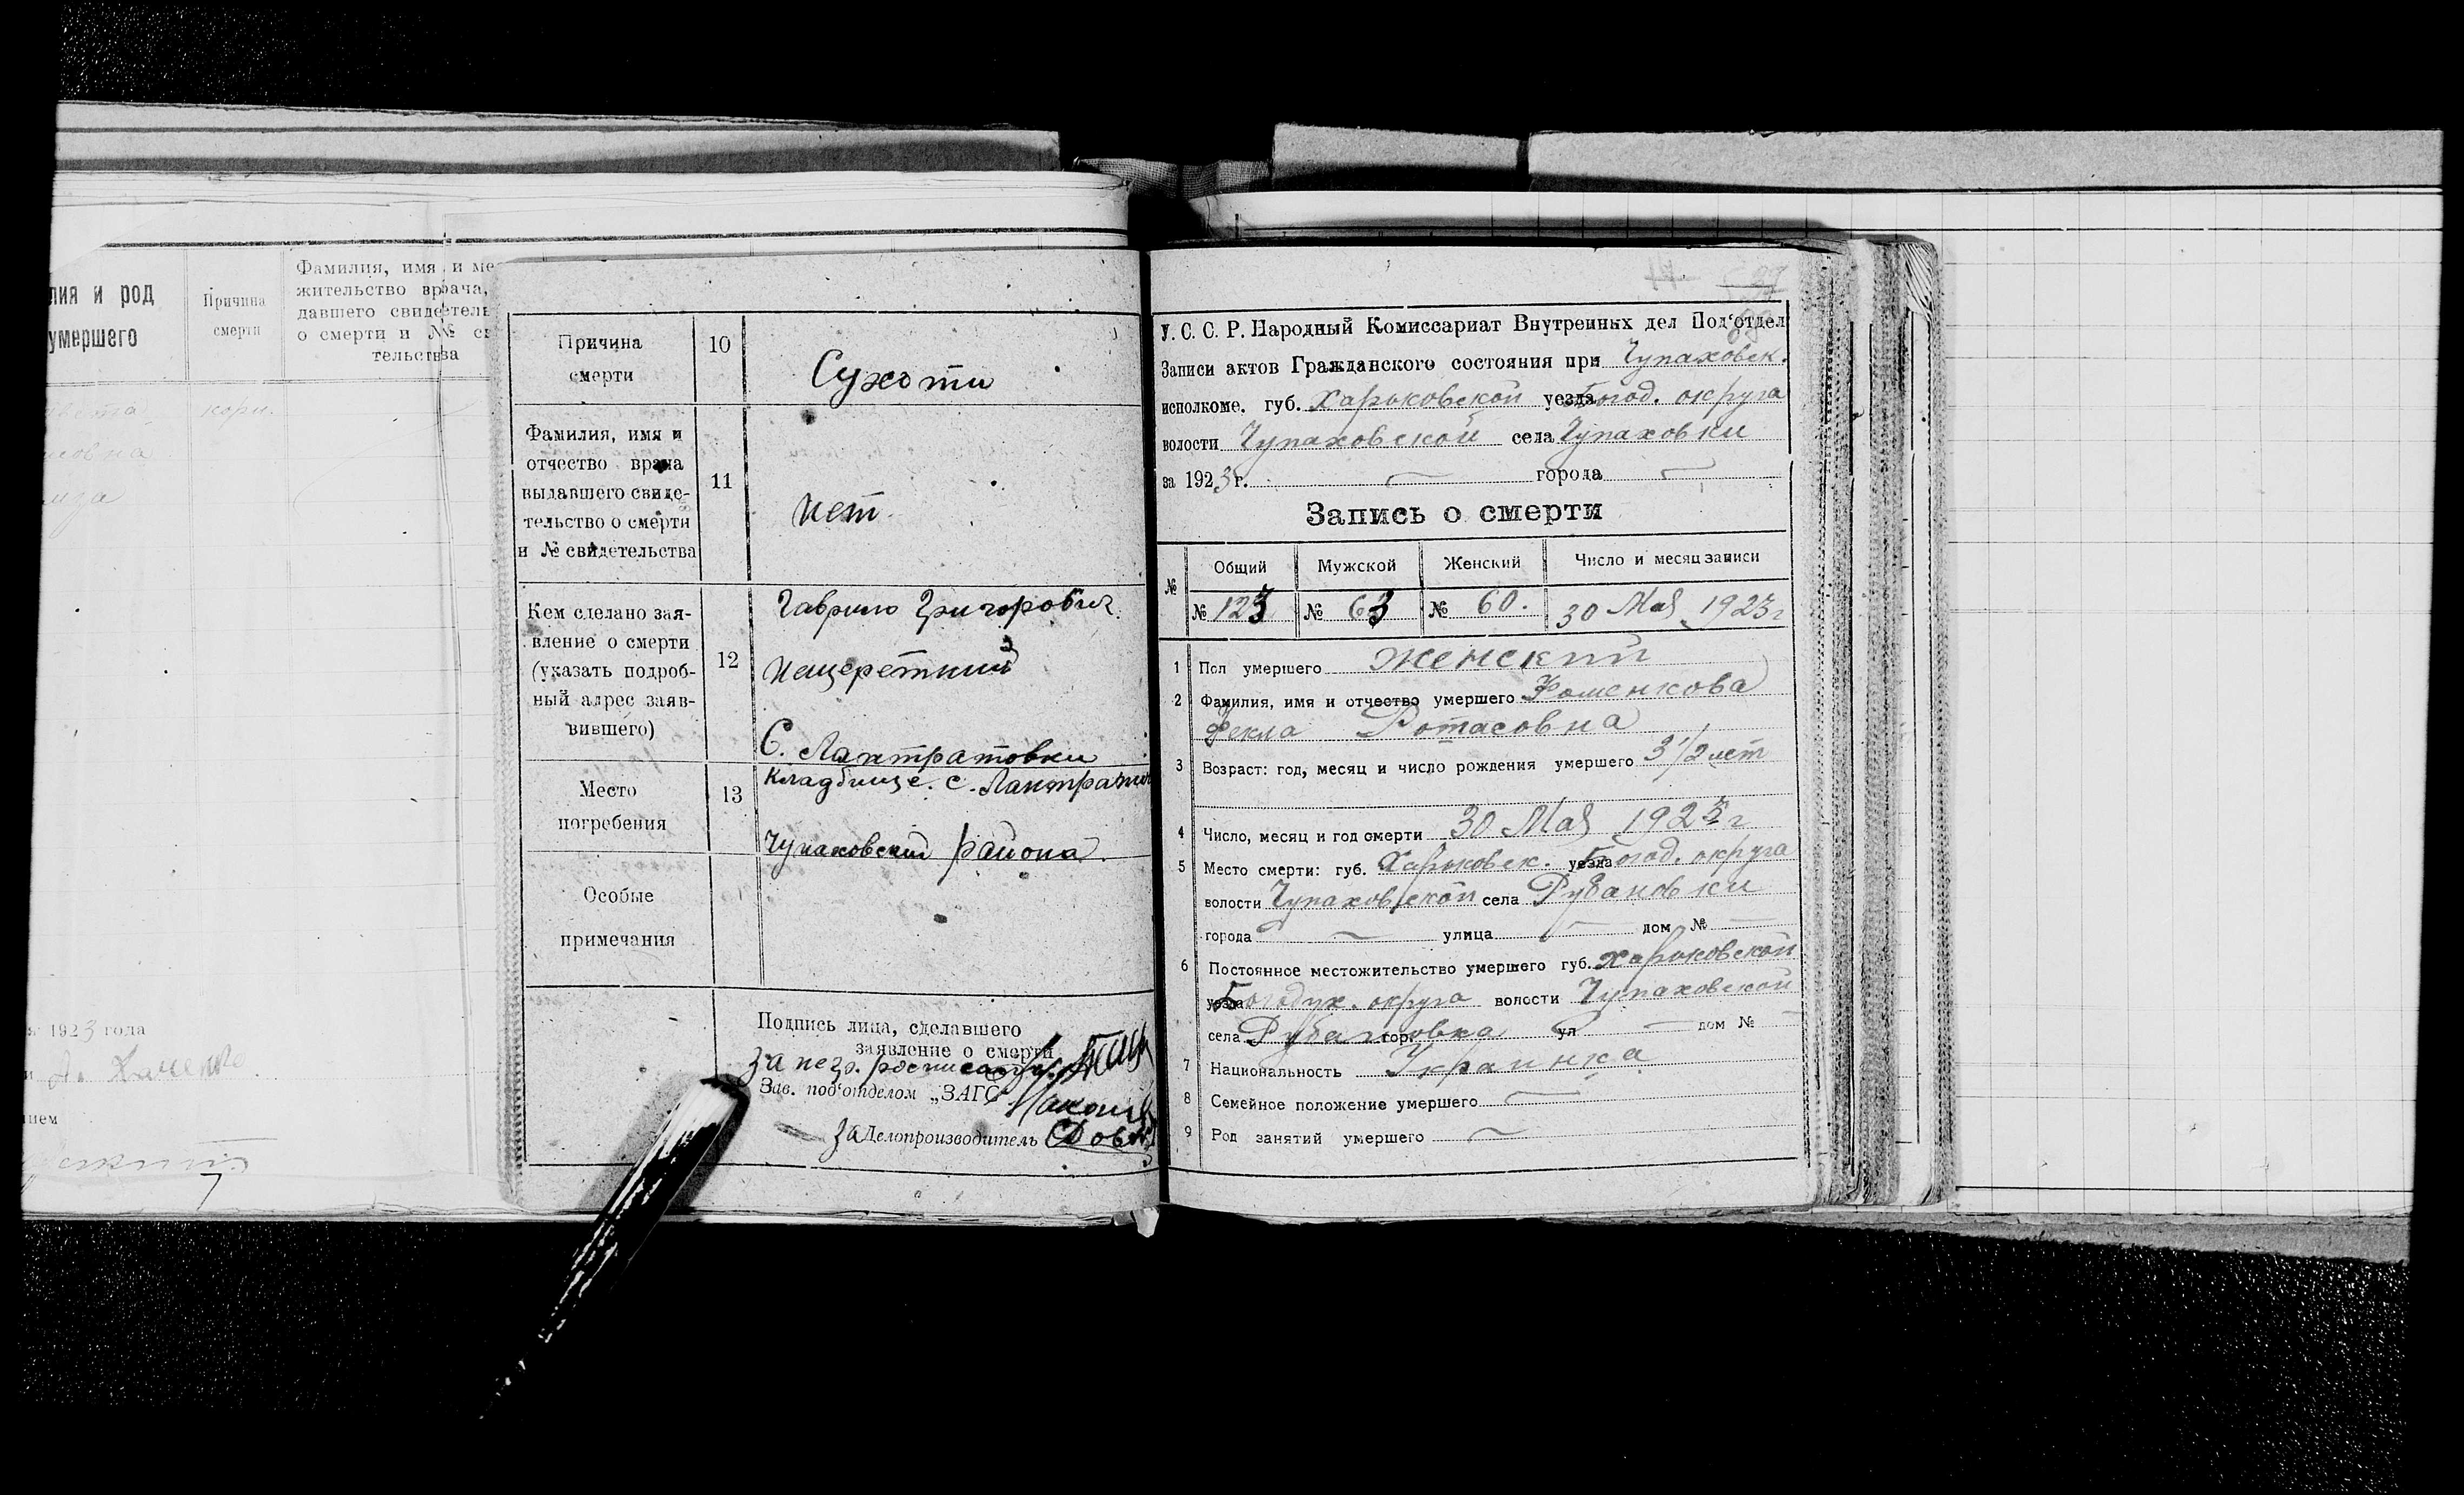 лия и род
умершего
Причина
смерти
Фамилия, имя и ме
жительство врача,
давшего свидетель
о смерти и № св
тельства
корь.
овна
1923 года
нием
Причина
смерти
10
Сухоти
Фамилия, имя и
отчество врача
выдавшего свиде-
тельство о смерти
и № свидетельства
11
нет
Кем сделано зая-
вление о смерти
(указать подроб-
ный адрес заяв-
вившего)
12
Гаврило Григорович
Нещеретний
С. Лантратовки
Место
погребения
13
кладбище. с. Лантратов
Чупаховский района.
Особые
примечания
Подпись лица, сделавшего
заявление о смерти
За негр. росписался
Зав. под'отделом „ЗАГС"
За Делопроизводитель
У. С. С. Р. Народный Комиссариат Внутренних дел Под'отдел
Записи актов Гражданского состояния при Чупаховск.
исполкоме. губ. Харьковской уезда Богод. округа
волости Чупаховской села Чупаховки
за 1923 г. — города —
Запись о смерти
№ Общий Мужской Женский Число и месяц записи
№ 123 № 63 № 60. 30 Мая 1923 г
1 Пол умершего Женский
2 Фамилия, имя и отчество умершего Фоменкова
Фекла Потасовна
3 Возраст: год, месяц и число рождения умершего 3 1/2 лет
4 Число, месяц и год смерти 30 Мая 1923 г
5 Место смерти: губ. Харьковск. уезда Богод. округа
волости Чупаховской села Рубановки
города — улица — дом № —
6 Постоянное местожительство умершего губ. Харьковской
уезда Богодух. округа волости Чупаховской
села Рубановка гор. ул — дом № —
7 Национальность Украинка
8 Семейное положение умершего —
9 Род занятий умершего —